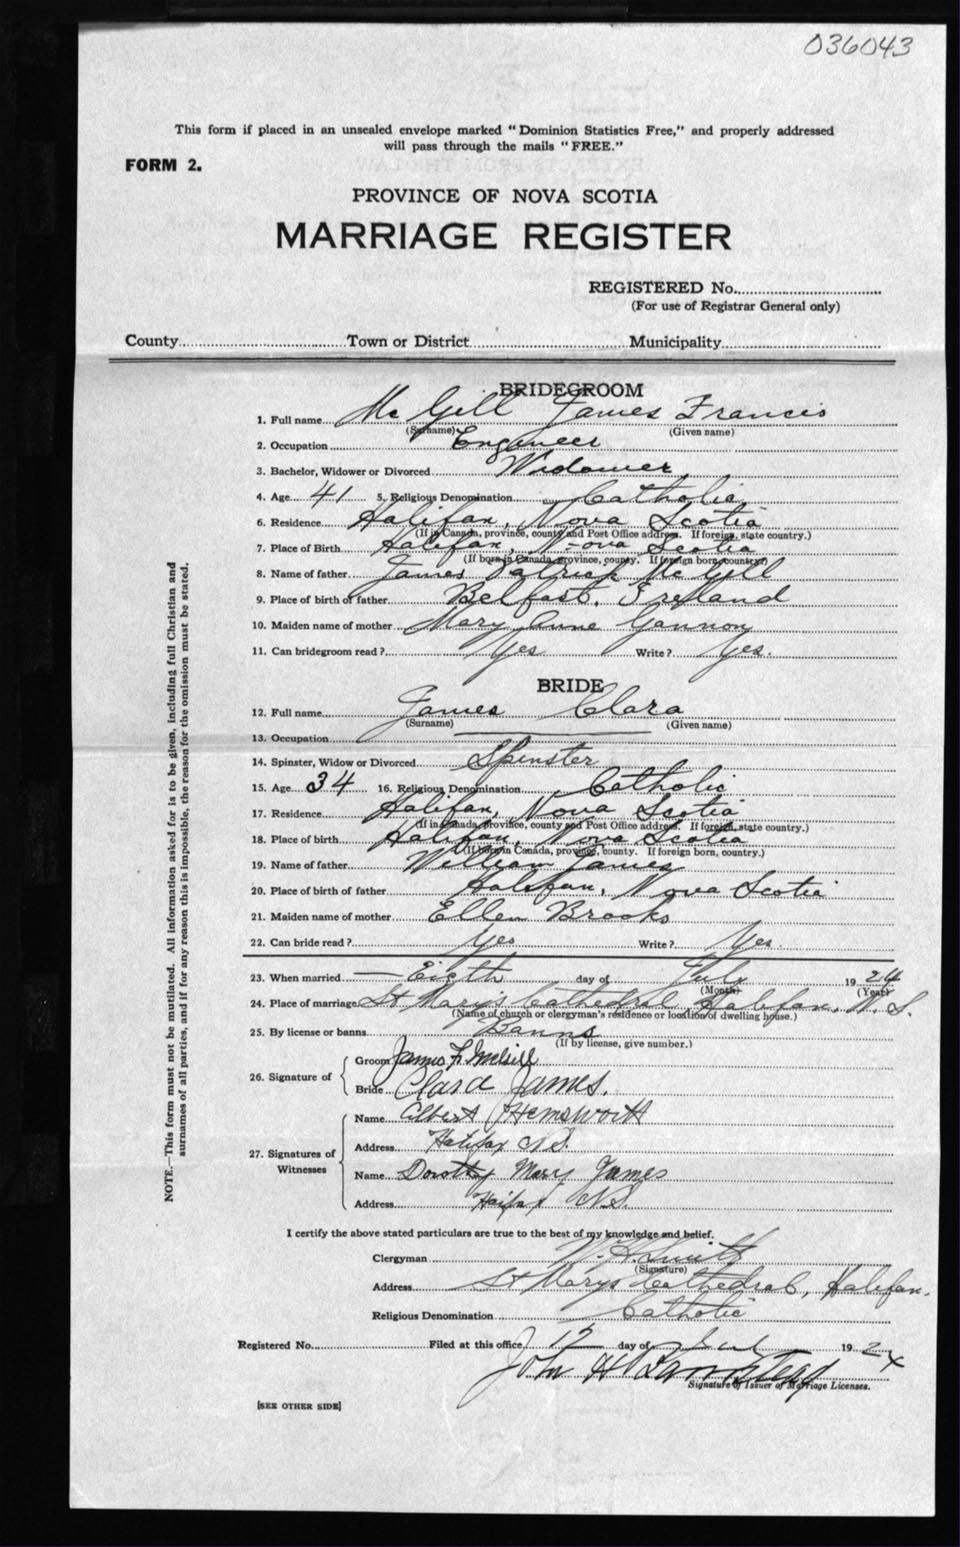 036043
This form if placed in an unsealed envelope marked "Dominion Statistics Free," and properly addressed
will pass through the mails "FREE."
FORM 2.
PROVINCE OF NOVA SCOTIA
MARRIAGE REGISTER
REGISTERED No.
(For use of Registrar General only)
County Town or District Municipality
BRIDEGROOM
1. Full name Mc Gill James Francis
(Surname) (Given name)
2. Occupation Engineer
3. Bachelor, Widower or Divorced Widower
4. Age 41 5. Religious Denomination Catholic
6. Residence Halifax, Nova Scotia
(If in Canada, province, county and Post Office address. If foreign, state country.)
7. Place of Birth Halifax, Nova Scotia
(If born in Canada, province, county. If foreign born, country)
8. Name of father James Patrick Mc Gill
9. Place of birth of father Belfast, Ireland
10. Maiden name of mother Mary Anne Gannon
11. Can bridegroom read? Yes Write? Yes.
BRIDE
12. Full name James Clara
(Surname) (Given name)
13. Occupation
14. Spinster, Widow or Divorced Spinster
15. Age 34 16. Religious Denomination Catholic
17. Residence Halifax, Nova Scotia
(If in Canada, province, county and Post Office address. If foreign, state country.)
18. Place of birth Halifax, Nova Scotia
(If born in Canada, province, county. If foreign born, country.)
19. Name of father William James
20. Place of birth of father Halifax, Nova Scotia
21. Maiden name of mother Ellen Brooks
22. Can bride read? Yes Write? Yes
23. When married Eigth day of July 1924
(Month) (Year)
24. Place of marriage St Mary's Cathedral Halifax, N.S.
(Name of church or clergyman's residence or location of dwelling house.)
25. By license or banns Banns
(If by license, give number.)
26. Signature of
Groom James F. McGill
Bride Clara James.
27. Signatures of Witnesses
Name Albert Hemsworth
Address Halifax N.S.
Name Dorothy Mary James
Address Halifax N.S.
I certify the above stated particulars are true to the best of my knowledge and belief.
Clergyman W. H. Smith
(Signature)
Address St Marys Cathedral, Halifax.
Religious Denomination Catholic
Registered No. Filed at this office 12 day of July 1924
John H
Signature of Issuer of Marriage Licenses.
[SEE OTHER SIDE]
NOTE.—This form must not be mutilated. All information asked for is to be given, including full Christian and
surnames of all parties, and if for any reason this is impossible, the reason for the omission must be stated.